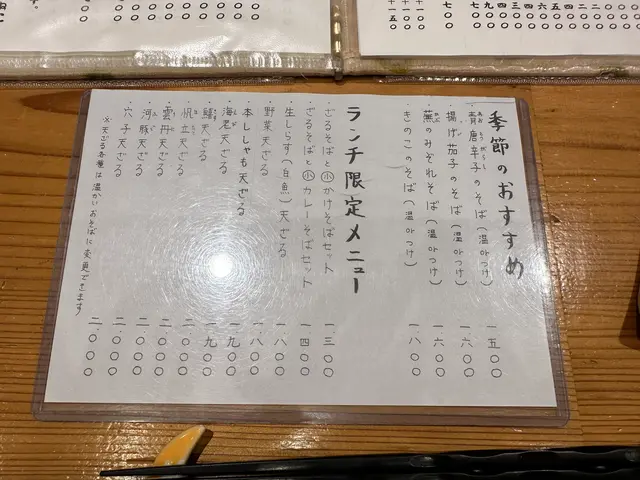 季節のおすすめ
・青唐辛子のそば(温orつけ) 一五〇〇
・揚げ茄子のそば(温orつけ) 一六〇〇
・蕪のみぞれそば(温orつけ) 一六〇〇
・きのこのそば(温orつけ) 一八〇〇
ランチ限定メニュー
・ざるそばと小かけそばセット 一三〇〇
・ざるそばと小カレーそばセット 一四〇〇
・生しらす(白魚)天ざる 一八〇〇
・野菜天ざる 一八〇〇
・本ししゃも天ざる 一九〇〇
・海老天ざる 一九〇〇
・鱚天ざる 二〇〇〇
・帆立天ざる 二〇〇〇
・雲丹天ざる 二〇〇〇
・河豚天ざる 二〇〇〇
・穴子天ざる 二〇〇〇
※天ざる各種は温かいおそばに変更できます